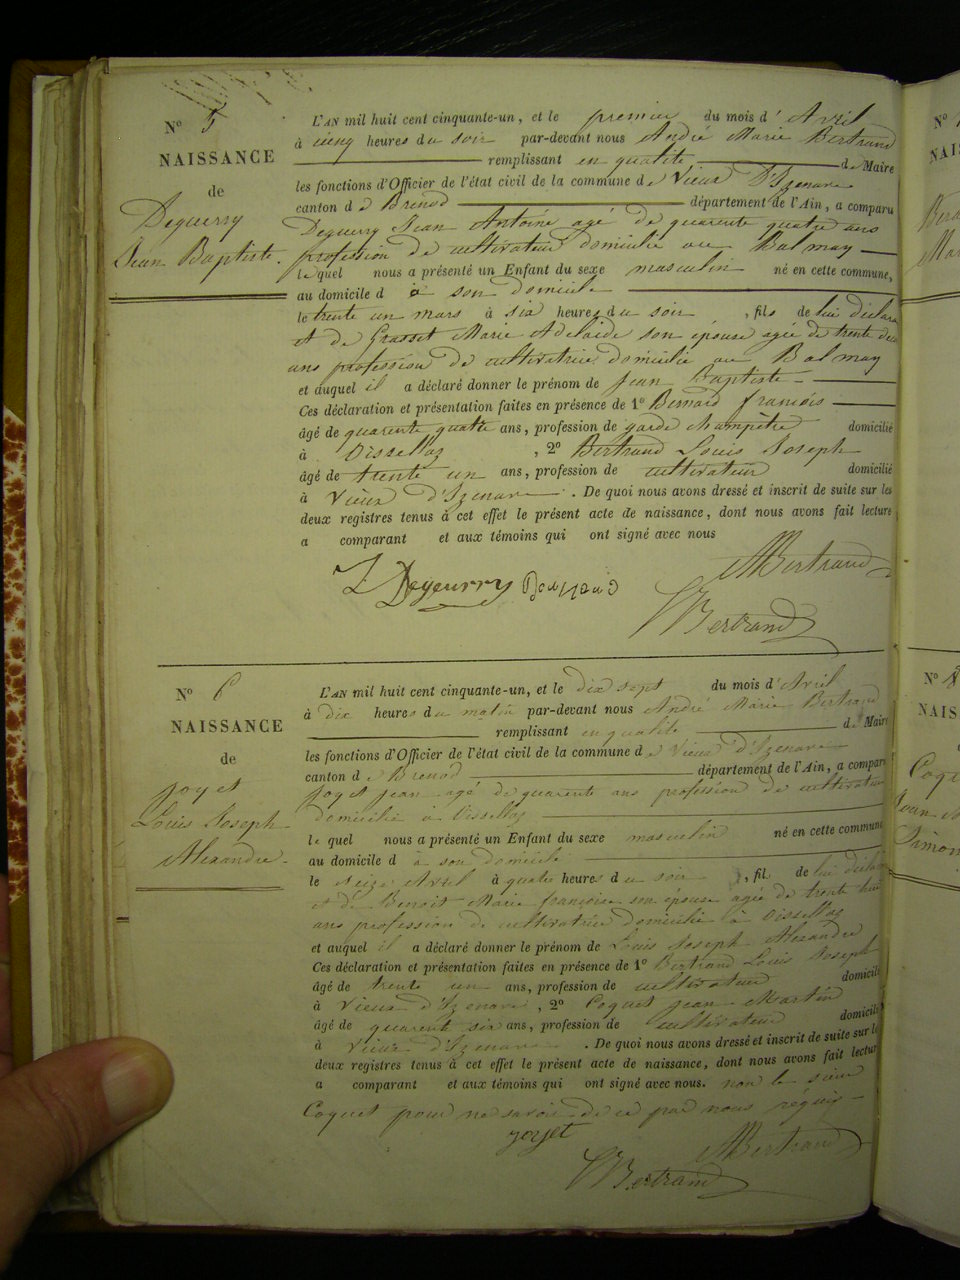 N° 5
NAISSANCE
de
Deguerry
Jean Baptiste.
L'AN mil huit cent cinquante-un, et le premier du mois d'Avril
à cinq heures du soir par-devant nous André Marie Bertrand
remplissant en qualité de Maire
les fonctions d'Officier de l'état civil de la commune de Vieux D'Izenave
canton de Brenod département de l'Ain, a comparu
Deguerry Jean Antoine agé de quarente quatre ans
profession de cultivateur domicilié au Balmay
lequel nous a présenté un Enfant du sexe masculin né en cette commune,
au domicile d à son domicile
le trente un mars à six heures du soir, fils de lui déclara
et de Grasset Marie Adelaide son épouse agée de trente deux
ans profession de cultivatrice domicilié au Balmay
et auquel il a déclaré donner le prénom de Jean Baptiste
Ces déclaration et présentation faites en présence de 1° Bernard françois
âgé de quarente quatre ans, profession de garde champêtre domicilié
à Oissellaz, 2° Bertrand Louis Joseph
âgé de trente un ans, profession de cultivateur domicilié
à Vieux d'Izenave. De quoi nous avons dressé et inscrit de suite sur les
deux registres tenus à cet effet le présent acte de naissance, dont nous avons fait lecture
a comparant et aux témoins qui ont signé avec nous
Deguerry Bernard AMBertrand
Bertrand
N° 6
NAISSANCE
de
joyet
Louis Joseph
Alexandre.
L'AN mil huit cent cinquante-un, et le dix sept du mois d'Avril
à dix heures du matin par-devant nous André Marie Bertrand
remplissant en qualité de Maire
les fonctions d'Officier de l'état civil de la commune de Vieux D'Izenave
canton de Brenod département de l'Ain, a compar
joyet jean agé de quarente ans profession de cultivateur
domicilié à Oissellaz
le quel nous a présenté un Enfant du sexe masculin né en cette commune
au domicile d à son domicile
le seize Avril à quatre heures du soir, fil de lui déclar
et de Benoit Marie françoise son épouse agée de trente huit
ans profession de cultivatrice domicilié à Oissellaz
et auquel il a déclaré donner le prénom de Louis Joseph Alexandre
Ces déclaration et présentation faites en présence de 1° Bertrand Louis Joseph
âgé de trente un ans, profession de cultivateur domicilié
à Vieux d'Izenave, 2° Coquet jean Martin
âgé de quarente six ans, profession de cultivateur domicilié
à Vieux d'Izenave. De quoi nous avons dressé et inscrit de suite sur le
deux registres tenus à cet effet le présent acte de naissance, dont nous avons fait lectur
a comparant et aux témoins qui ont signé avec nous. non le sieur
Coquet pour ne savoir de ce par nous réquis
joyet AMBertrand
Bertrand
N°
NAIS
N° 8
NAIS
Coq
Jean
Simon